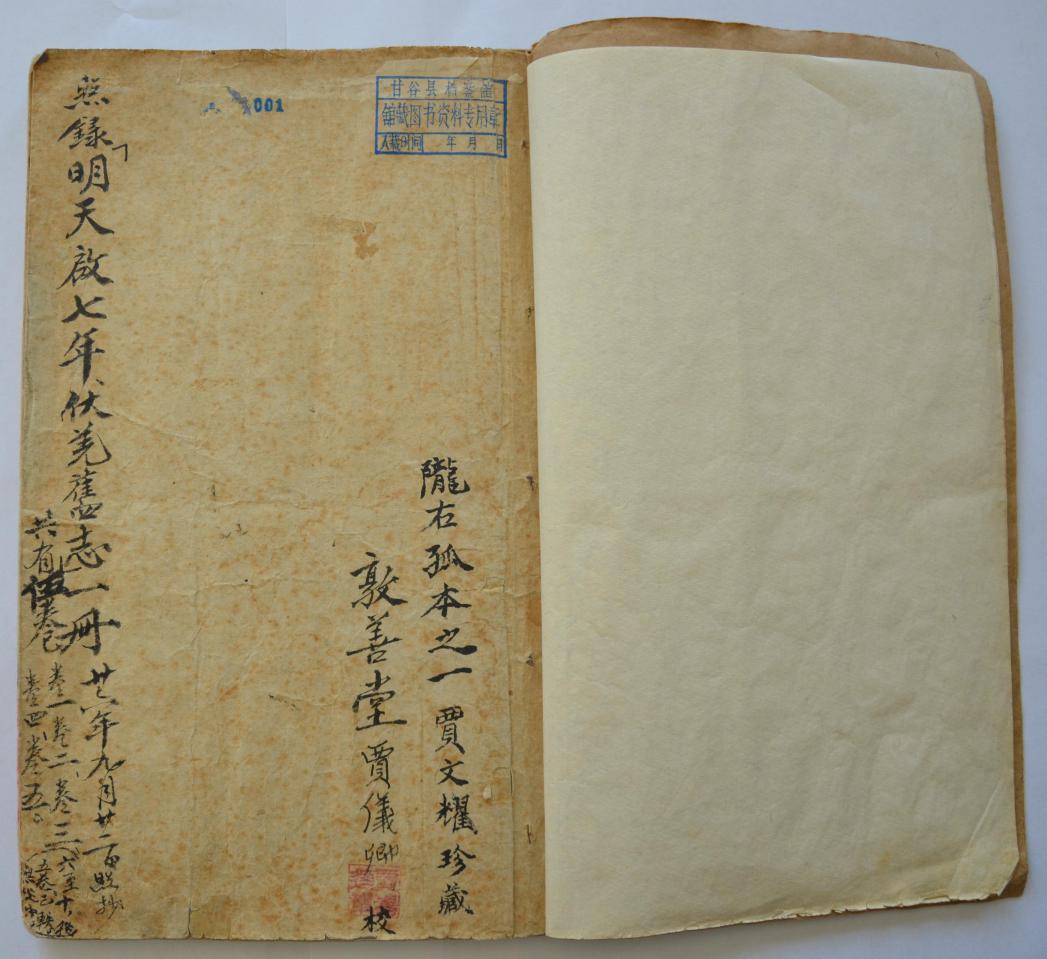 001
甘谷县档案馆
馆藏图书资料专用章
入藏时间 年 月 日
隴右孤本之一 賈文耀珍藏
敦善堂賈儀卿 校
照錄明天啟七年伏羌舊志一冊 廿六年九月廿二日照抄
共有伍卷 卷一卷二、卷三
卷四、卷五、
六至十
五卷已